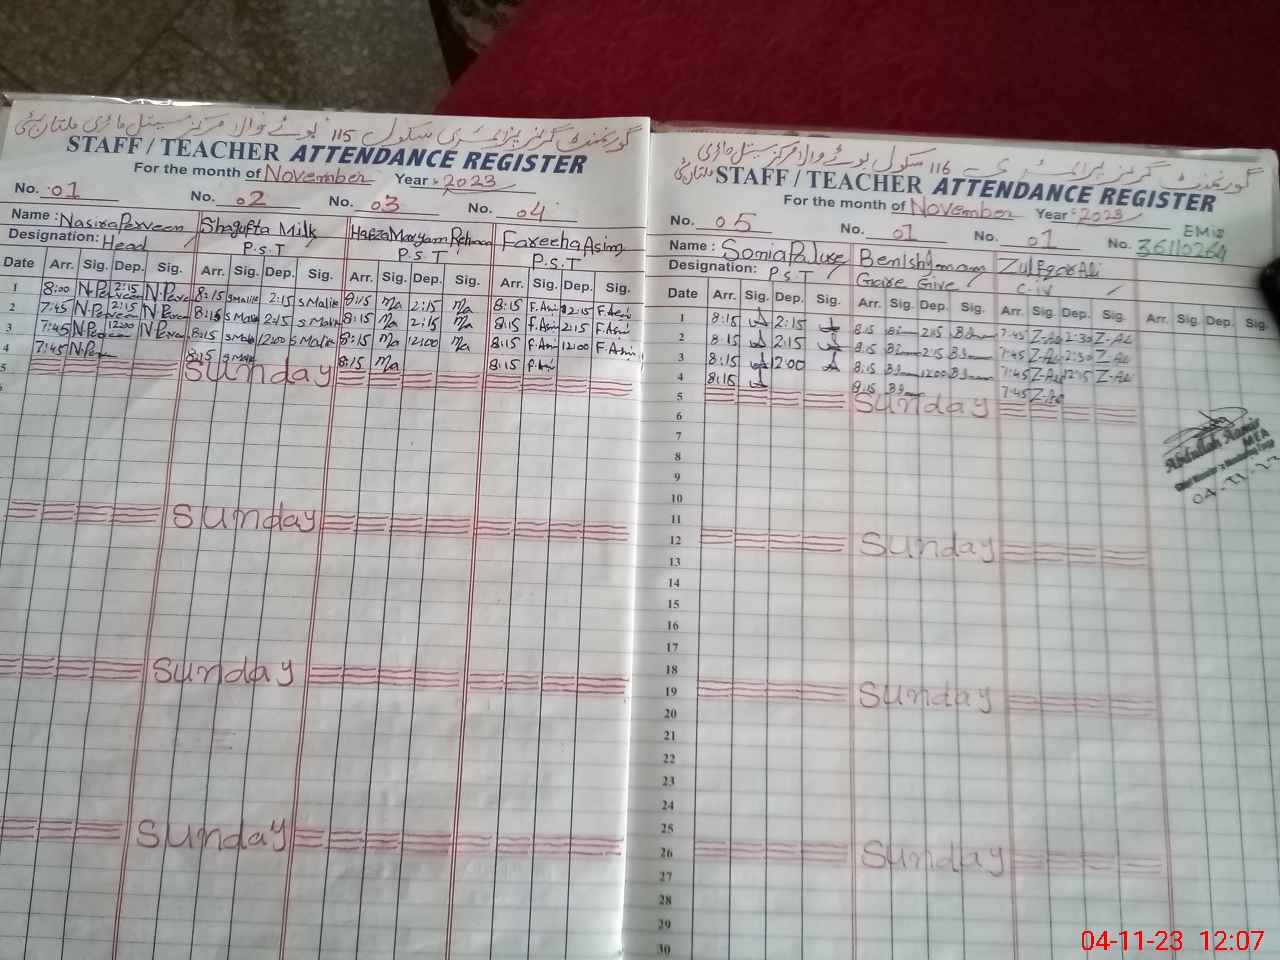 گورنمنٹ گرلز پرائمری سکول 115 بوٹے والا مرکز سیتل ماڑی ملتان سٹی
STAFF / TEACHER ATTENDANCE REGISTER
For the month of November Year : 2023
No. 01 No. 02 No. 03 No. 04
Name : Nasira Parveen Shagufta Milk Hafza Maryam Rehman Fareeha Asim
Designation: Head P.S.T P.S.T P.S.T
Date Arr. Sig. Dep. Sig. Arr. Sig. Dep. Sig. Arr. Sig. Dep. Sig. Arr. Sig. Dep. Sig.
1 8:00 N-Parveen 2:15 N-Parveen 8:15 S Malik 2:15 S Malik 8:15 Ma 2:15 Ma 8:15 F.Asim 2:15 F.Asim
2 7:45 N-Parveen 2:15 N-Parveen 8:15 S Malik 2:15 S Malik 8:15 Ma 2:15 Ma 8:15 F.Asim 2:15 F.Asim
3 7:45 N-Parveen 12:00 N-Parveen 8:15 S Malik 12:00 S Malik 8:15 Ma 12:00 Ma 8:15 F.Asim 12:00 F.Asim
4 7:45 N-Parveen 8:15 S Malik 8:15 Ma 8:15 F.Asim
5 Sunday
Sunday
Sunday
Sunday
گورنمنٹ گرلز پرائمری سکول 116 بوٹے والا مرکز سیتل ماڑی ملتان سٹی
STAFF / TEACHER ATTENDANCE REGISTER
For the month of November Year : 2023
No. 05 No. 01 No. 01 No. EMis 36110264
Name : Sonia
Zulfqar Ali
Designation: P.S.T Care Give C.IV
Date Arr. Sig. Dep. Sig. Arr. Sig. Dep. Sig. Arr. Sig. Dep. Sig. Arr. Sig. Dep. Sig.
1 8:15 2:15 8:15 2:15 7:45 Z-Ali 2:30 Z-Ali
2 8:15 2:15 8:15 2:15 7:45 Z-Ali 2:30 Z-Ali
3 8:15 12:00 8:15 12:00 7:45 Z-Ali 12:15 Z-Ali
4 8:15 8:15 7:45 Z-Ali
5 Sunday
6
7
8
9
10
11
12 Sunday
13
14
15
16
17
18
19 Sunday
20
21
22
23
24
25
26 Sunday
27
28
29
30
Abdullah Amir
MEA
04-11-23
04-11-23 12:07